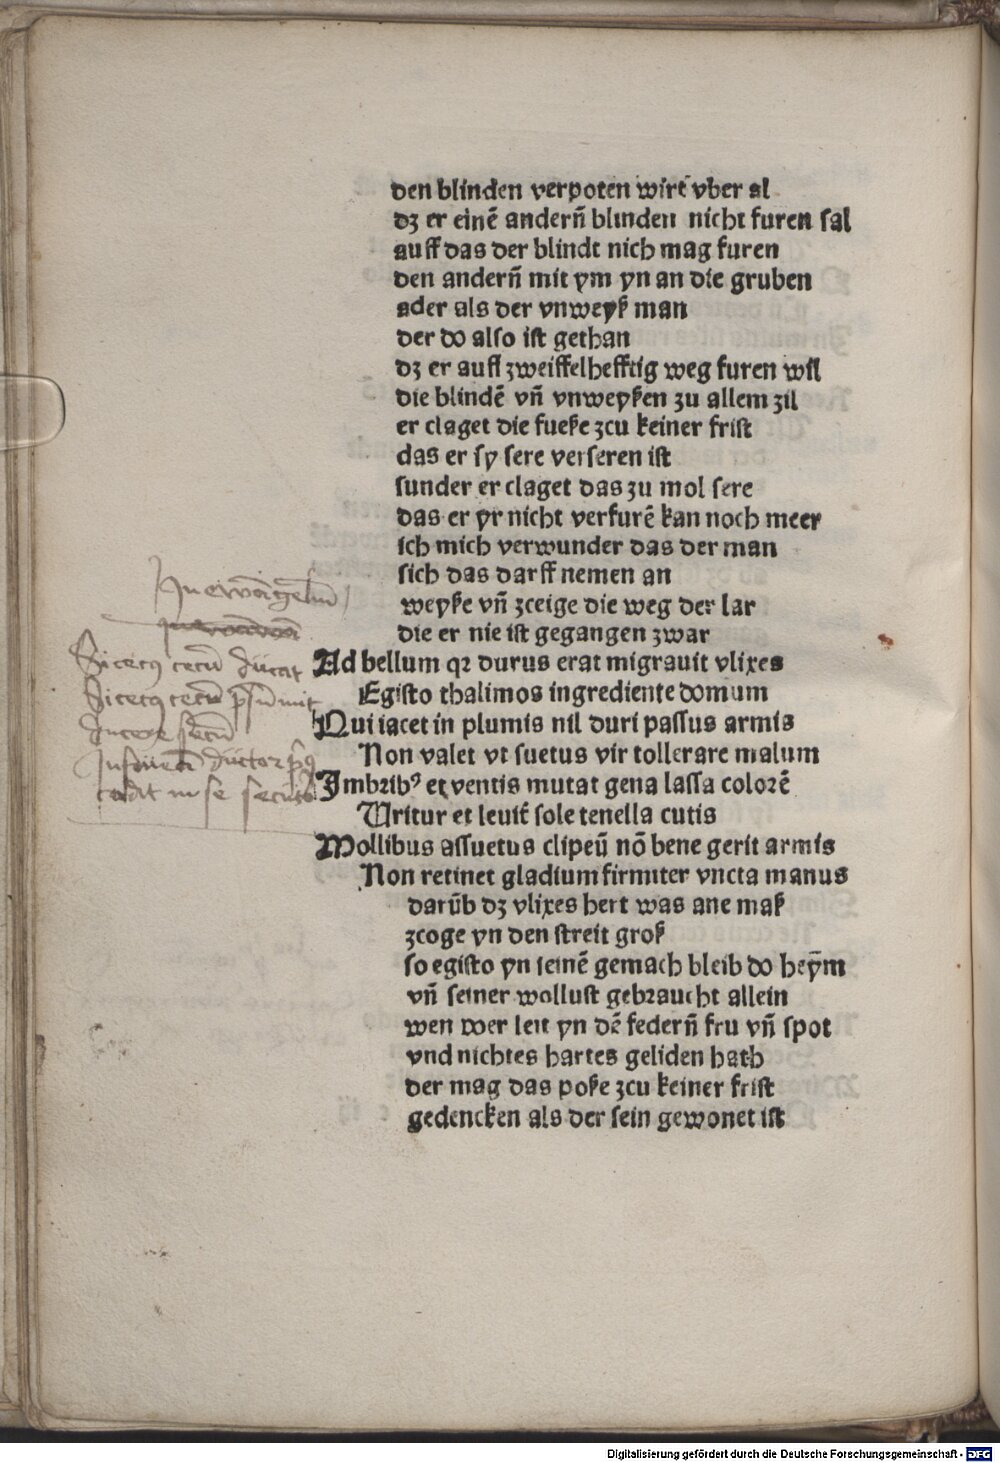 den blinden verpoten wirt vber al
dz er einē andern̄ blinden nicht furen sal
auff das der blindt nich mag furen
den andern̄ mit ym yn an die gruben
ader als der vnweyß man
der do also ist gethan
dz er auff zweiffelhefftig weg furen wil
die blindē vn̄ vnweyßen zu allem zil
er claget die fueße zcu keiner frist
das er sy sere verseren ist
sunder er claget das zu mol sere
das er yr nicht verfurē kan noch meer
ich mich verwunder das der man
sich das darff nemen an
weyße vn̄ zceige die weg der lar
die er nie ist gegangen zwar
In ewāgeliū
Si cecus cecū ducat
Si cecus cecū
ductor
cadit in se
Ad bellum qꝛ durus erat migrauit vlixes
Egisto thalimos ingrediente domum
Qui iacet in plumis nil duri passus armis
Non valet vt suetus vir tollerare malum
Imbribꝰ et ventis mutat gena lassa colorē
Uritur et leuit̄ sole tenella cutis
Mollibus assuetus clipeū nō bene gerit armis
Non retinet gladium firmiter vncta manus
darūb dz vlixes hert was ane maß
zcoge yn den streit groß
so egisto yn seinē gemach bleib do heȳm
vn̄ seiner wollust gebraucht allein
wen wer leit yn dē federn̄ fru vn̄ spot
vnd nichtes hartes geliden hath
der mag das poße zcu keiner frist
gedencken als der sein gewonet ist
Digitalisierung gefördert durch die Deutsche Forschungsgemeinschaft - DFG